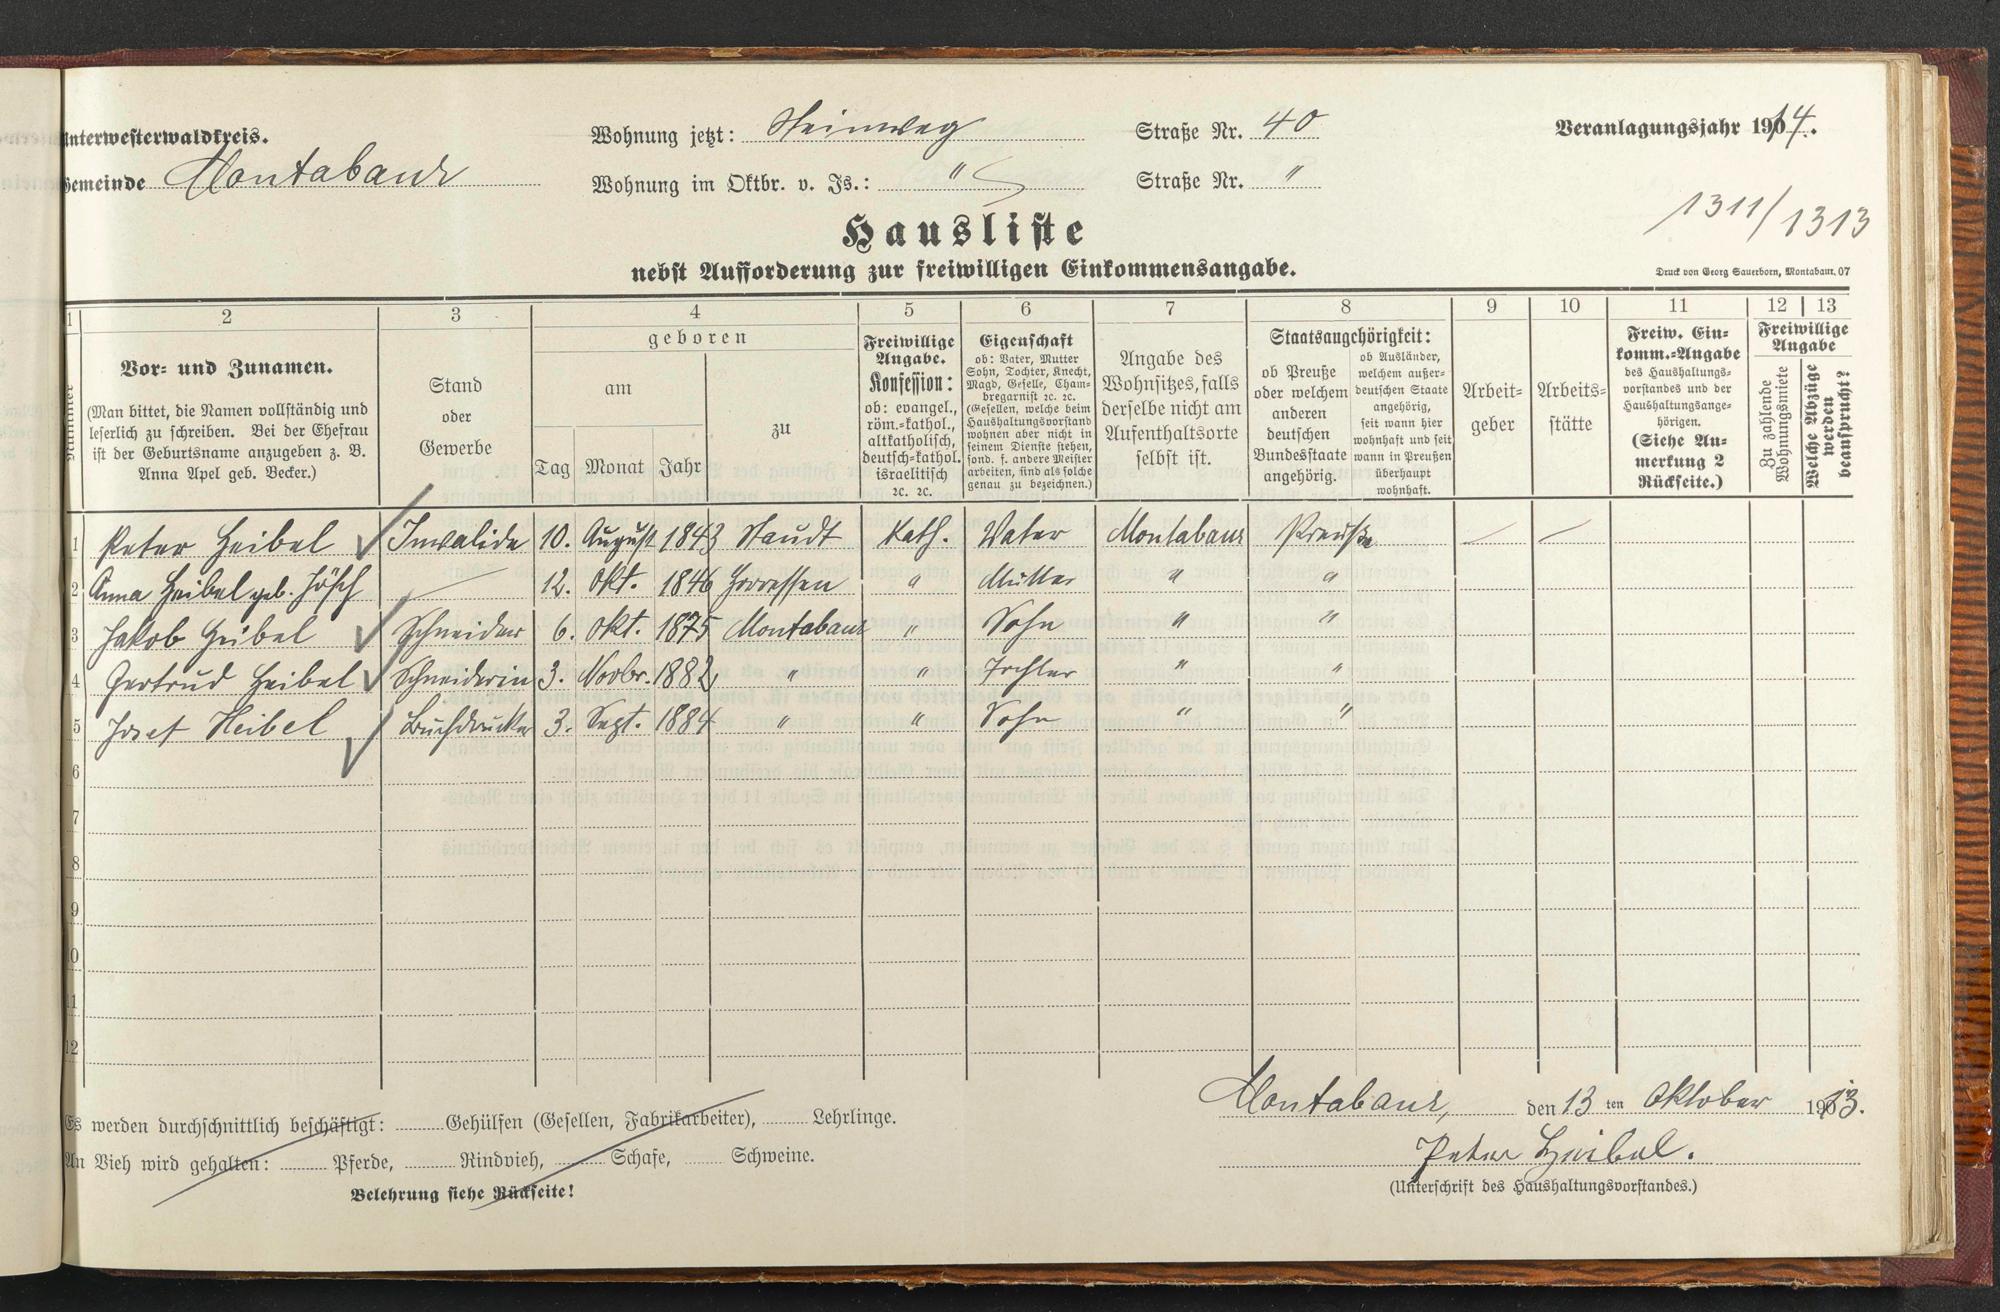 Unterwesterwaldkreis.
Gemeinde Montabaur
Wohnung jetzt: Steinweg Straße Nr. 40
Wohnung im Oktbr. v. Js.: " Straße Nr. "
Veranlagungsjahr 1914.
1311/1313
Hausliste
nebst Aufforderung zur freiwilligen Einkommensangabe.
Druck von Georg Sauerborn, Montabaur. 07
1 2 3 4 5 6 7 8 9 10 11 12 13
Nummer
Vor- und Zunamen.
(Man bittet, die Namen vollständig und
leserlich zu schreiben. Bei der Ehefrau
ist der Geburtsname anzugeben z. B.
Anna Apel geb. Becker.)
Stand
oder
Gewerbe
geboren
am
Tag Monat Jahr
zu
Freiwillige
Angabe.
Konfession:
ob: evangel.,
röm.-kathol.,
altkatholisch,
deutsch-kathol.
israelitisch
ꝛc. ꝛc.
Eigenschaft
ob: Vater, Mutter
Sohn, Tochter, Knecht,
Magd, Geselle, Cham-
bregarnist ꝛc. ꝛc.
(Gesellen, welche beim
Haushaltungsvorstand
wohnen aber nicht in
seinem Dienste stehen,
sond. f. andere Meister
arbeiten, sind als solche
genau zu bezeichnen.)
Angabe des
Wohnsitzes, falls
derselbe nicht am
Aufenthaltsorte
selbst ist.
Staatsangehörigkeit:
ob Preuße
oder welchem
anderen
deutschen
Bundesstaate
angehörig.
ob Ausländer,
welchem außer-
deutschen Staate
angehörig,
seit wann hier
wohnhaft und seit
wann in Preußen
überhaupt
wohnhaft.
Arbeit-
geber
Arbeits-
stätte
Freiw. Ein-
komm.-Angabe
des Haushaltungs-
vorstandes und der
Haushaltungsange-
hörigen.
(Siehe An-
merkung 2
Rückseite.)
Freiwillige
Angabe
Zu zahlende
Wohnungsmiete
Welche Abzüge
werden
beansprucht?
1 Peter Heibel Invalide 10. August 1843 Staudt Kath. Vater Montabaur Preuße — —
2 Anna Heibel geb. Hösch — 12. Okt. 1846 " Mutter " "
3 Jakob Heibel Schneider 6. Okt. 1875 Montabaur " Sohn " "
4 Gertrud Heibel Schneiderin 3. Novbr. 1882 " " Tochter " "
5 Josef Heibel Buchdrucker 3. Sept. 1884 " " Sohn " "
6
7
8
9
10
11
12
Montabaur, den 13 ten Oktober 1913.
Es werden durchschnittlich beschäftigt: Gehülfen (Gesellen, Fabrikarbeiter), Lehrlinge.
Peter Heibel.
An Vieh wird gehalten: Pferde, Rindvieh, Schafe, Schweine.
(Unterschrift des Haushaltungsvorstandes.)
Belehrung siehe Rückseite!